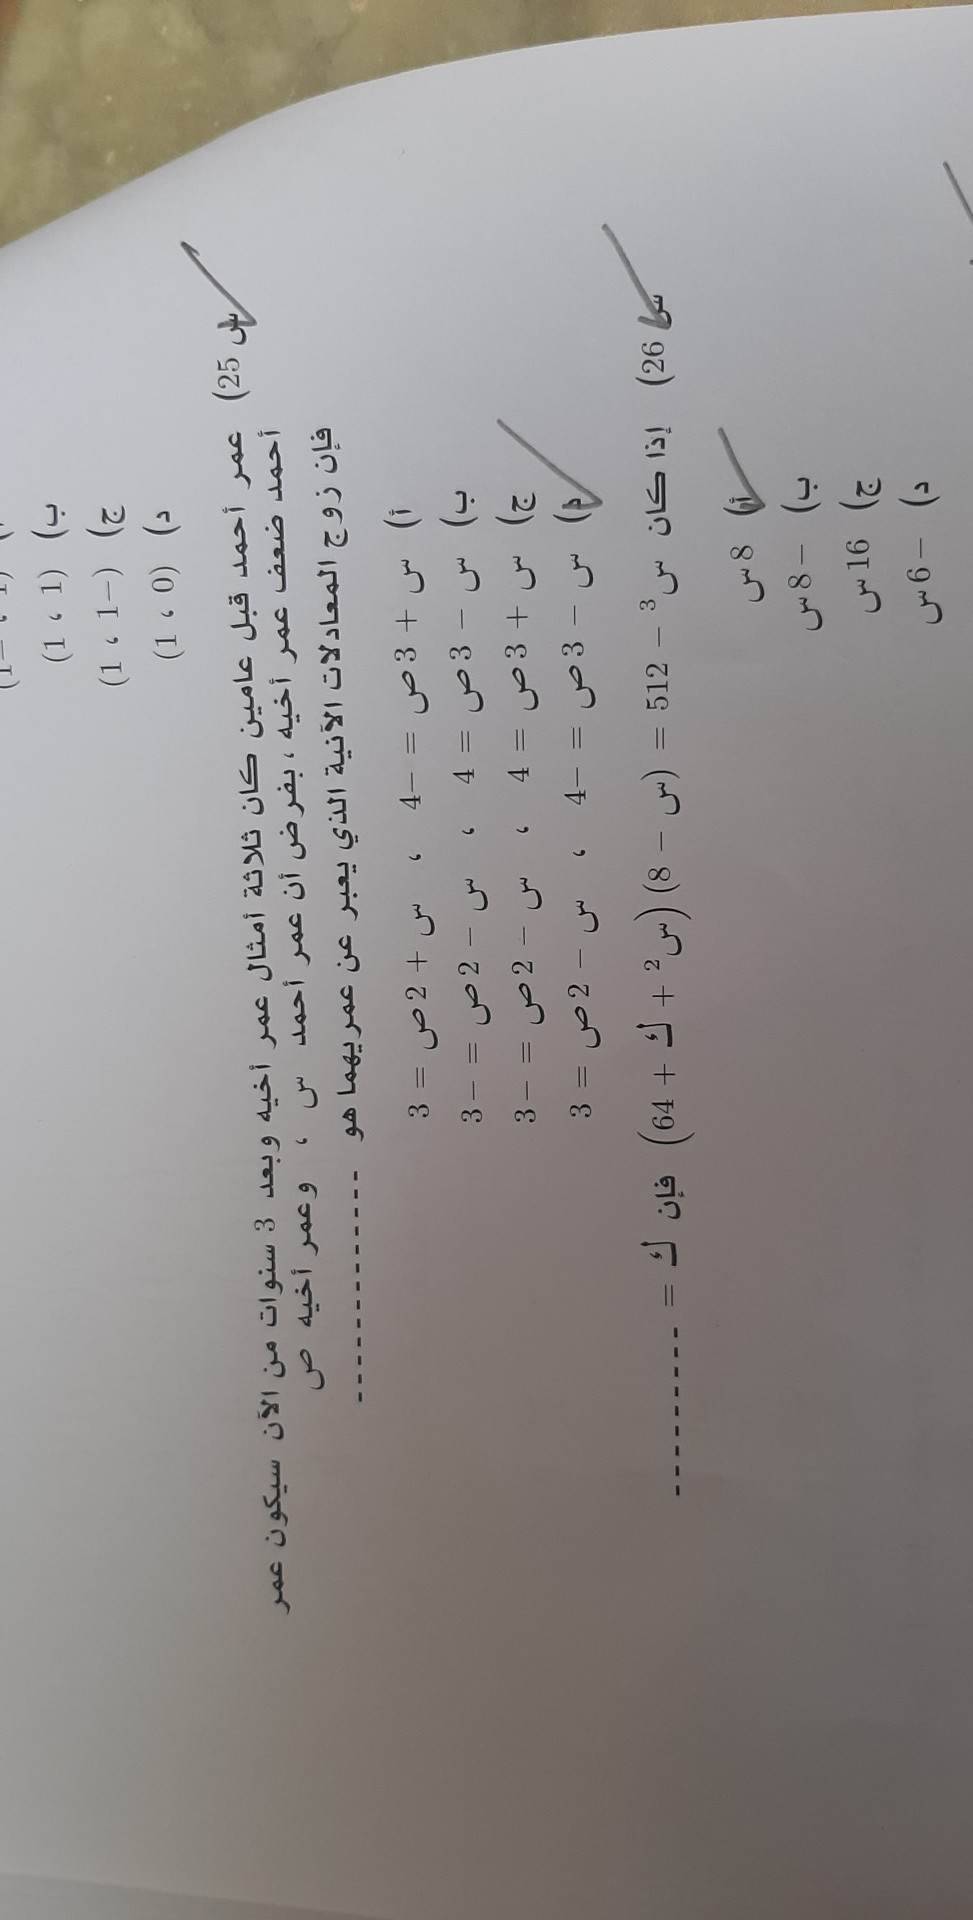 ب) (1 ، 1)
ج) (−1 ، 1)
د) (0 ، 1)
س 25) عمر أحمد قبل عامين كان ثلاثة أمثال عمر أخيه وبعد 3 سنوات من الآن سيكون عمر
أحمد ضعف عمر أخيه ، بفرض أن عمر أحمد س ، وعمر أخيه ص
فإن زوج المعادلات الآتية الذي يعبر عن عمريهما هو ------------
أ) س + 3ص = −4 ، س + 2ص = 3
ب) س − 3ص = 4 ، س − 2ص = −3
ج) س + 3ص = 4 ، س − 2ص = −3
د) س − 3ص = −4 ، س − 2ص = 3
س 26) إذا كان س³ − 512 = (س − 8)(س² + ك + 64) فإن ك = ----------
أ) 8س
ب) −8س
ج) 16س
د) −6س